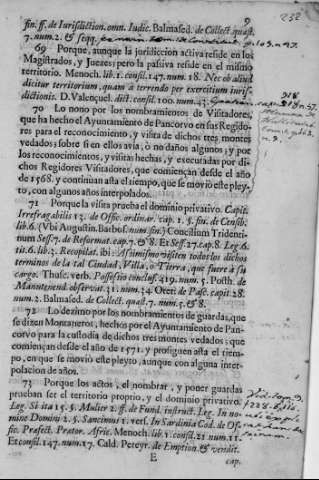 9
232
fin. ff. de Iurisdiction. omn. Iudic. Balmased. de Collect. quæst.
7. num. 2. & seqq.
69 Porque, aunque la juridiccion activa reside en los
Magistrados, y Juezes; pero la passiva reside en el mismo
territorio. Menoch. lib. 1. consil. 147. num. 18. Nec ob aliud
dicitur territorium, quam à terrendo per exercitium iuris-
dictionis. D. Valençuel. dict. consil. 100. num. 43.
70 Lo nono por los nombramientos de Visitadores,
que ha hecho el Ayuntamiento de Pancorvo en sus Regido-
res para el reconocimiento, y visita de dichos tres montes
vedados; sobre si en ellos avia, ò no daños algunos; y por
los reconocimientos, y visitas hechas, y executadas por di-
chos Regidores Visitadores, que comiençan desde el año
de 1568. y continuan asta el tiempo, que se moviò este pley-
to, con algunos años interpolados.
71 Porque la visita prueba el dominio privativo. Capit.
Irrefragabilis 13. de Offic. ordinar. cap. 1. §. fin. de Censib.
lib. 6. (Vbi Augustin. Barbos. num. fin.) Concilium Tridenti-
num Sess. 7. de Reformat. cap. 7. & 8. Et Sess. 27. cap. 8. Leg. 6.
tit. 6. lib. 3. Recopilat. ibi: Assimismo visiten todos los dichos
terminos de la tal Ciudad, Villa, ò Tierra, que fuere à su
cargo. Thusc. verb. Possessio conclus. 419. num. 5. Posth. de
Manutenend. observat. 31. num. 34. Oter. de Pasc. capit. 28.
num. 2. Balmased. de Collect. quæst. 7. num. 5. & 8.
72 Lo dezimo por los nombramientos de guardas, que
se dizen Montaneros, hechos por el Ayuntamiento de Pan-
corvo para la custodia de dichos tres montes vedados; que
comiençan desde el año de 1571. y prosiguen asta el tiem-
po, en que se moviò este pleyto, aunque con alguna inter-
polacion de años.
73 Porque los actos, el nombrar, y poner guardas
prueban ser el territorio proprio, y el dominio privativo.
Leg. Si ita 15. §. Mulier 2. ff. de Fund. instruct. Leg. In no-
mine Domini 2. §. Sancimus 1. vers. In Sardinia Cod. de Of-
fic. Præfect. Prætor. Afric. Menoch. lib. 1. consil. 21. num. 11.
Et consil. 147. num. 17. Cald. Pereyr. de Emption. & vendit.
E
cap.